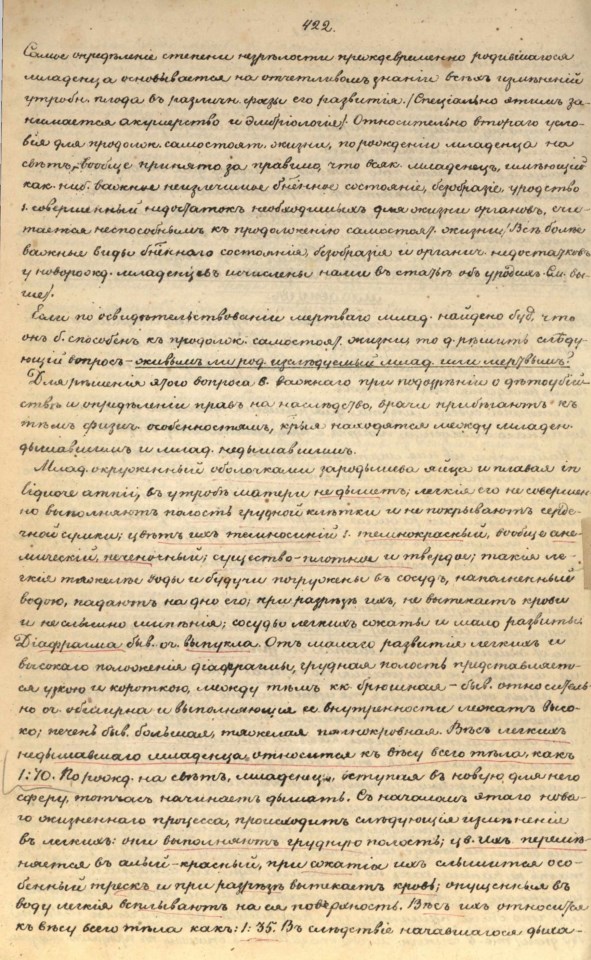 422.
Самое опредѣленіе степени незрѣлости преждевременно родившагося
младенца основывается на отчетливомъ знаніи всѣхъ измѣненій
утробн. плода въ различн. фазы его развитія. /Спеціально этимъ за-
нимается акушерство и эмбріологія/. Относительно втораго усло-
вія для продолж. самостоят. жизни, по рожденіи младенца на
свѣтъ, вообще принято за правило, что всяк. младенецъ, имѣющій
как. ниб. важное неизлечимое бнѣнное состояніе, безобразіе, уродство
s. совершенный недостатокъ необходимыхъ для жизни органовъ, счи-
тается неспособнымъ къ продолженію самостоят. жизни. /Всѣ болѣе
важные виды бнѣннаго состоянія, безобразія и органич. недостатковъ
у новорожд. младенцевъ исчислены нами въ статьѣ объ уродахъ. См. вы-
ше/.
Если по освидѣтельствованіи мертваго млад. найдено буд., что
онъ б. способенъ къ продолж. самостоят. жизни, то д. рѣшить слѣду-
ющій вопросъ – живымъ ли род. изслѣдуемый млад. или мертвымъ?
Для рѣшенія этого вопроса в. важнаго при подозрѣніи о дѣтоубій-
ствѣ и опредѣленіи правъ на наслѣдство, врачи прибѣгаютъ къ
тѣмъ физич. особенностямъ, крыя находятся между младен.
дышавшимъ и млад. недышавшимъ.
Млад. окруженный оболочками зародышева яйца и плавая in
liquore amnii, въ утробѣ матери не дышетъ; легкія его не совершен-
но выполняютъ полость грудной клѣтки и не покрываютъ сердеч-
ной сумки; цвѣтъ ихъ темносиній s. темнокрасный, вообще ане-
мическій, печеночный; существо – плотное и твердое; такія ле-
гкія тяжелѣе воды и будучи погружены въ сосудъ, наполненный
водою, падаютъ на дно его; при разрѣзѣ ихъ, не вытекаетъ крови
и не слышно шипѣнія; сосуды легкихъ сжаты и мало развиты.
Діафрагма быв. оч. выпукла. Отъ малаго развитія легкихъ и
высокаго положенія діафрагмы, грудная полость представляет-
ся узкою и короткою, между тѣмъ кк. брюшная – быв. относитель-
но оч. обширна и выполняющія ее внутренности лежатъ высо-
ко; печень быв. большая, тяжелая полнокровная. Вѣсъ легкихъ
недышавшаго младенца, относится къ вѣсу всего тѣла, какъ
1:70. По рожд. на свѣтъ, младенецъ, вступая въ новую для него
сферу, тотчасъ начинаетъ дышать. Съ началомъ этаго нова-
го жизненнаго процесса, происходитъ слѣдующія измѣненіе
въ легкихъ: они выполняютъ грудную полость; цв. ихъ перемѣ-
няется въ алый-красный, при сжатіи ихъ слышится осо-
бенный трескъ и при разрѣзѣ вытекаетъ кровь; опущенныя въ
воду легкія всплываютъ на ея поверхность. Вѣсъ ихъ относится
къ вѣсу всего тѣла какъ: 1:35. Въ слѣдствіе начавшагося дыха-